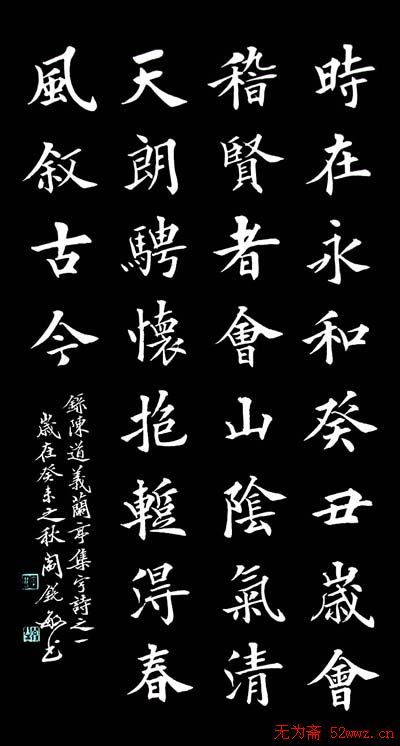 時在永和癸丑歲會
稽賢者會山陰氣清
天朗騁懷抱暫得春
風叙古今
錄陳道義蘭亭集字詩之一
歲在癸未之秋阎锐敏书
无为斋 52wwz.cn